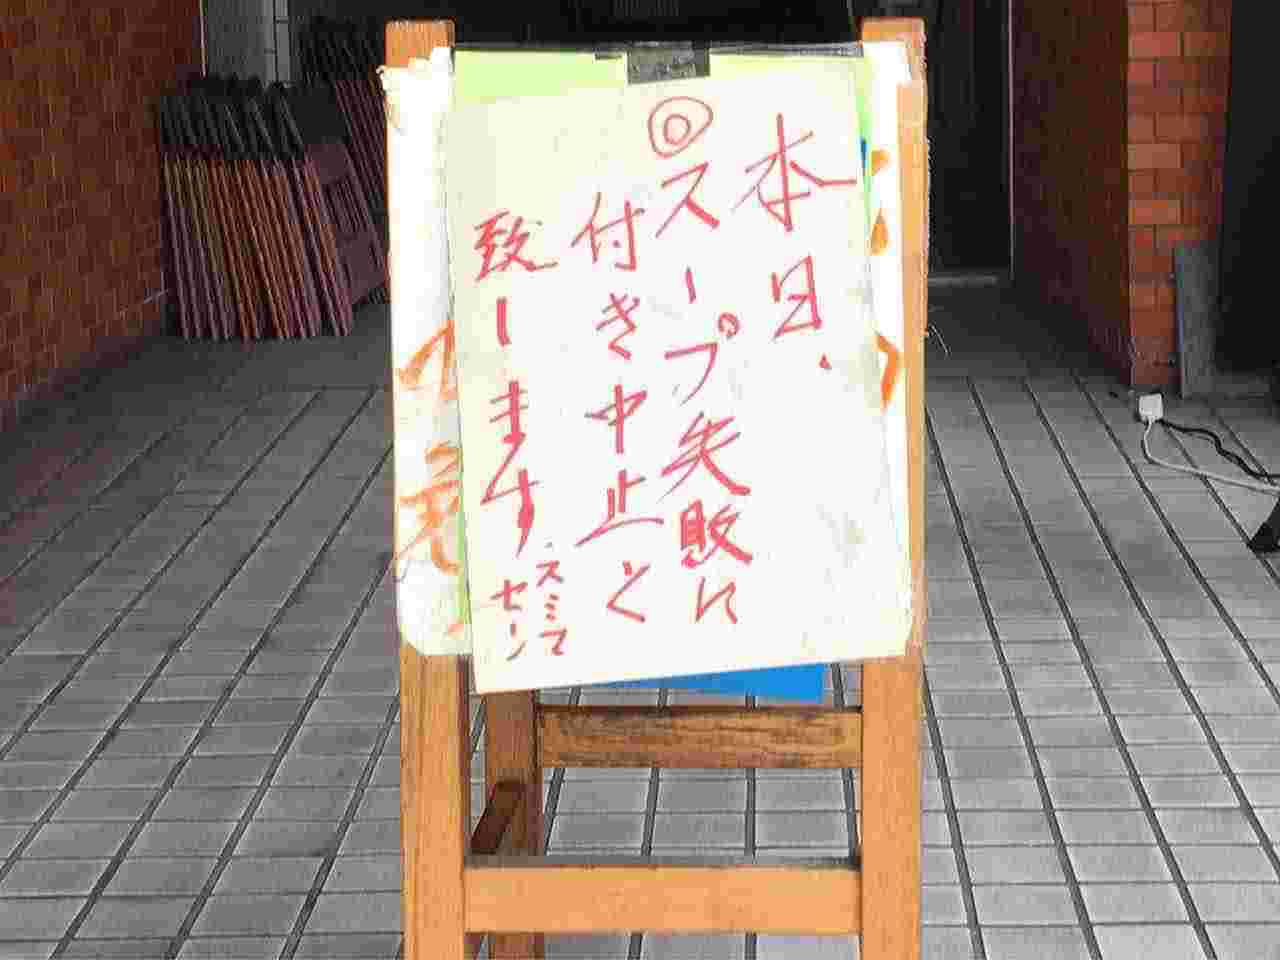 本日、
◎スープ失敗に
付き中止と
致します、
スミマ
セン